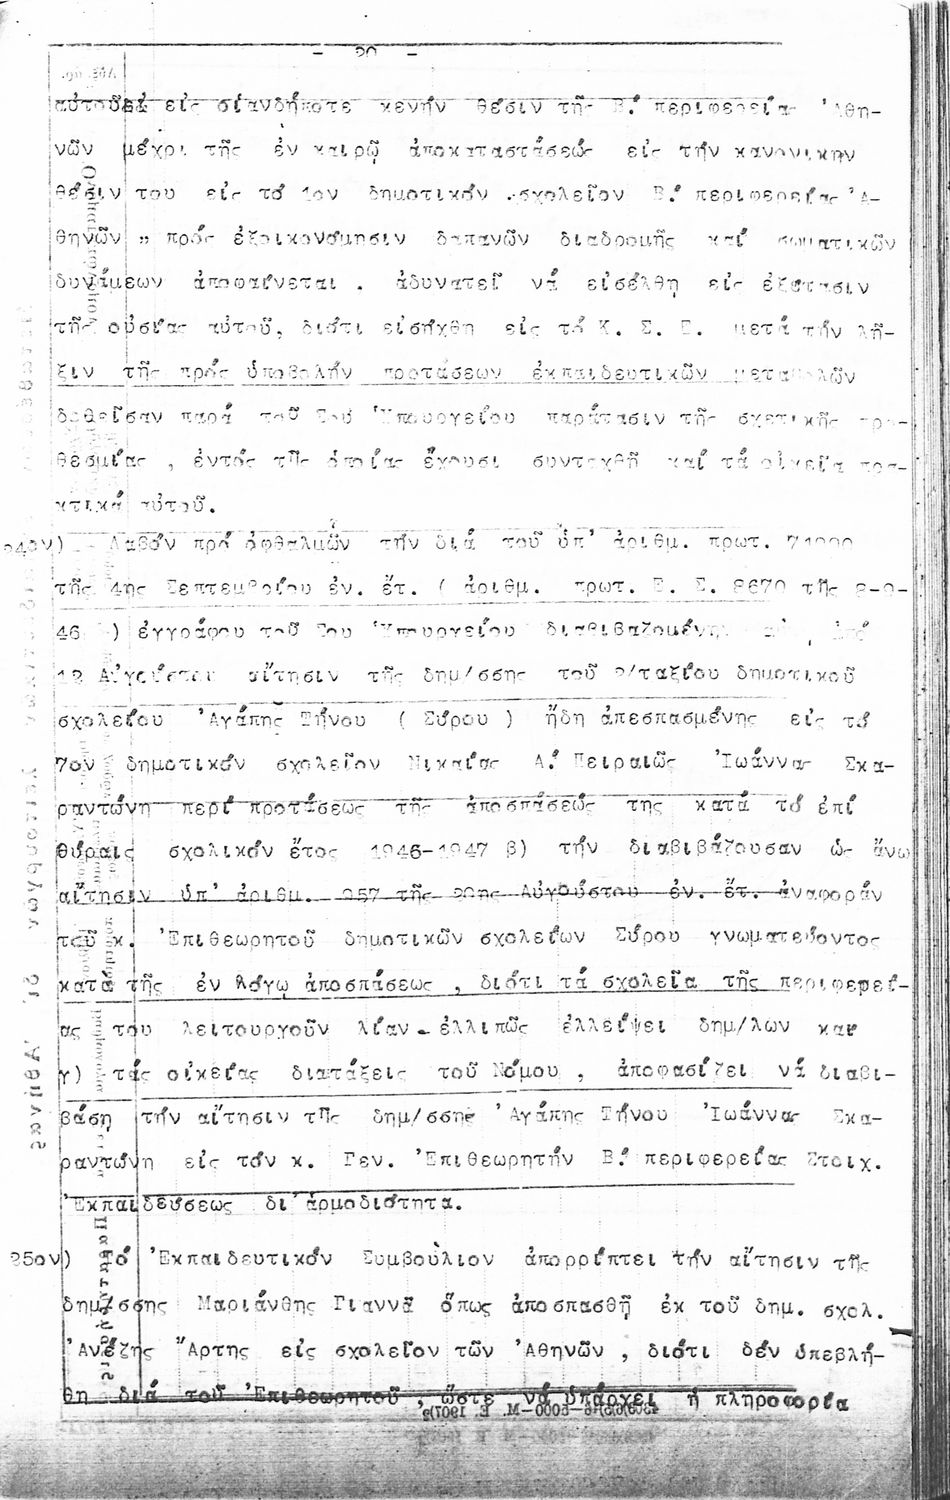 - 20 -
αὐτοῦ εἰς οἱανδήποτε κενήν θέσιν τῆς Β.' περιφερείας 'Αθη-
νῶν μέχρι τῆς ἐν καιρῷ ἀποκαταστάσεώς εἰς τήν κανονικήν
θέσιν του εἰς τό 1ον δημοτικόν σχολεῖον Β.' περιφερείας 'Α-
θηνῶν " πρός ἐξοικονόμησιν δαπανῶν διαδρομῆς καί σωματικῶν
δυνάμεων ἀποφαίνεται . ἀδυνατεῖ νά εἰσέλθη εἰς ἐξέτασιν
τῆς οὐσίας αὐτοῦ, διότι εἰσήχθη εἰς τό Κ. Σ. Ε. μετά τήν λῆ-
ξιν τῆς πρός ὑποβολήν προτάσεων ἐκπαιδευτικῶν μεταβολῶν
δοθεῖσαν παρά τοῦ Σοῦ Ὑπουργείου παράτασιν τῆς σχετικῆς προ-
θεσμίας , ἐντός τῆς ὁποίας ἔχουσι συνταχθῆ καί τά οἰκεῖα πρα-
κτικά αὐτοῦ.
24ον) - Λαβόν πρό ὀφθαλμῶν τήν διά τοῦ ὑπ' ἀριθμ. πρωτ.
τῆς 4ης Σεπτεμβρίου ἐν. ἔτ. ( ἀριθμ. πρωτ. Ε. Σ. 8670 τῆς 8-9-
46 ) ἐγγράφου τοῦ Σου Ὑπουργείου διαβιβαζομένην ἀπό
12 Αὐγούστου αἴτησιν τῆς δημ/σσης τοῦ 2/ταξίου δημοτικοῦ
σχολείου 'Αγάπης Τήνου ( Σύρου ) ἤδη ἀπεσπασμένης εἰς τό
7ον δημοτικόν σχολεῖον Νικαίας Α.' Πειραιῶς 'Ιωάννας Σκα-
ραντώνη περί προτάσεως τῆς ἀποσπάσεώς της κατά τό ἐπί
θύραις σχολικόν ἔτος 1946-1947 β) τήν διαβιβάζουσαν ὡς ἄνω
αἴτησιν ὑπ' ἀριθμ. 957 τῆς 29ης Αὐγούστου ἐν. ἔτ. ἀναφοράν
τοῦ κ. 'Επιθεωρητοῦ δημοτικῶν σχολείων Σύρου γνωματεύοντος
κατά τῆς ἐν λόγῳ ἀποσπάσεως , διότι τά σχολεῖα τῆς περιφερεί-
ας του λειτουργοῦν λίαν ἐλλιπῶς ἐλλείψει δημ/λων και
γ) τάς οἰκείας διατάξεις τοῦ Νόμου , ἀποφασίζει νά διαβι-
βάση τήν αἴτησιν τῆς δημ/σσης 'Αγάπης Τήνου 'Ιωάννας Σκα-
ραντώνη εἰς τόν κ. Γεν. 'Επιθεωρητήν Β.' περιφερείας Στοιχ.
'Εκπαιδεύσεως δι'ἁρμοδιότητα.
25ον) Τό 'Εκπαιδευτικόν Συμβούλιον ἀπορρίπτει τήν αἴτησιν τῆς
δημ/σσης Μαριάνθης Γιαννᾶ ὅπως ἀποσπασθῆ ἐκ τοῦ δημ. σχολ.
'Ανέζης "Αρτης εἰς σχολεῖον τῶν 'Αθηνῶν , διότι δέν ὑπεβλή-
θη διά τοῦ 'Επιθεωρητοῦ , ὥστε νά ὑπάρχει ἡ πληροφορία